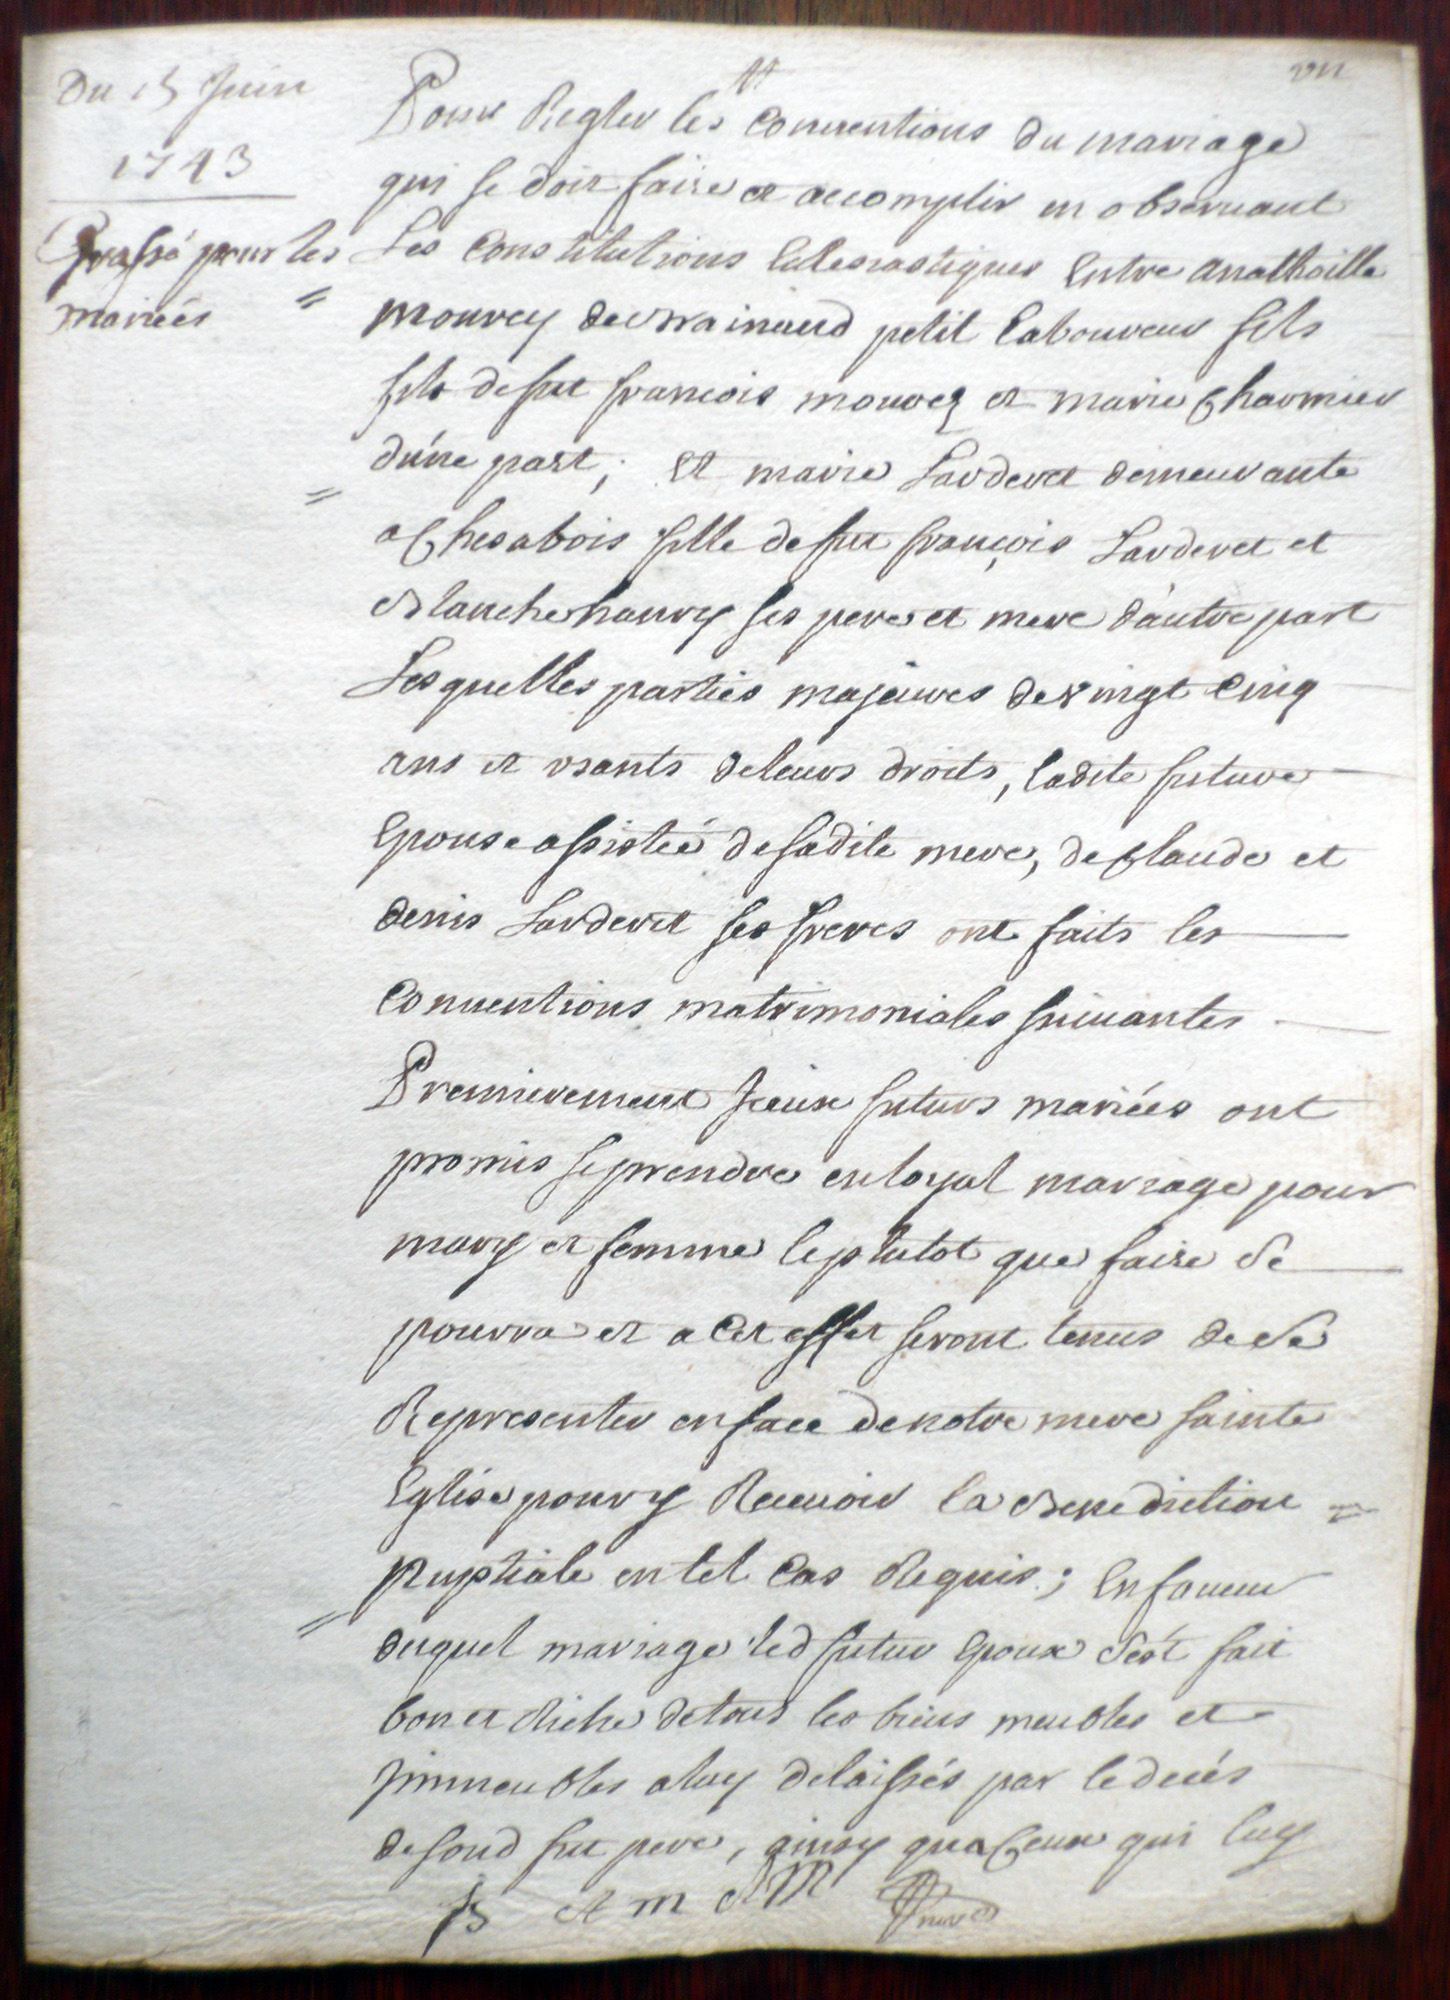 Du 15 Juin
1743
Grossé pour les
mariées
Pour Regler les Conventions du mariage
qui se doit faire et accomplir en observant
Les Constitutions Eclesiastiques Entre Anathoille
mourey de petit Laboureur fils
fils de fut francois mourey et marie Charmier
d'une part ; Et marie Larderet demeurante
a Chesabois fille de fut françois Larderet et
Blanche haury ses pere et mere d'autre part
Lesquelles parties majeures de vingt Cinq
ans et usants de leurs droits, ladite future
Epouse assistée de sadite mere, de Claude et
denis Larderet ses freres ont faits les
Conventions matrimoniales suivantes
Premierement Jceux futurs mariées ont
promis se prendre en loyal mariage pour
mary et femme le plutot que faire se
pourra et a Cet effet seront tenus de se
Representer en face de notre mere sainte
Eglise pour y Recevoir la Benediction
Nuptiale en tel Cas Requis ; En faveur
duquel mariage led futur Epoux s'est fait
bon et Riche de tous les biens meubles et
Jmmeubles a luy delaissés par le decés
de soud fut pere, ainsy qua Ceux qui luy
A m